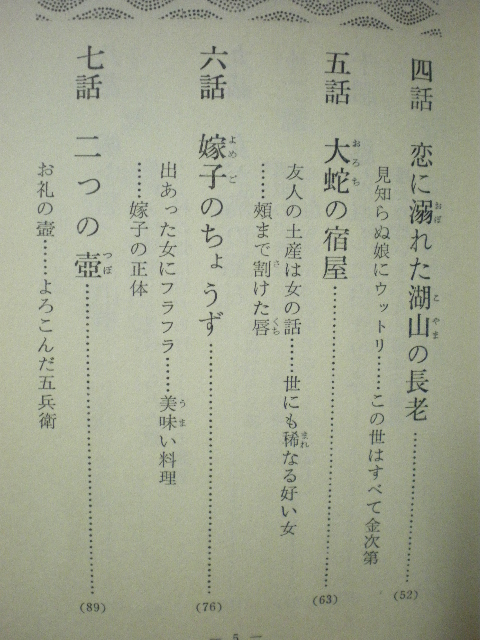 四話 恋に溺れた湖山の長老……………(52)
見知らぬ娘にウットリ……この世はすべて金次第
五話 大蛇の宿屋……………(63)
友人の土産は女の話……世にも稀なる好い女
……頰まで割けた唇
六話 嫁子のちょうず……………(76)
出あった女にフラフラ……美味い料理
……嫁子の正体
七話 二つの壺……………(89)
お礼の壺……よろこんだ五兵衛
— 5 —